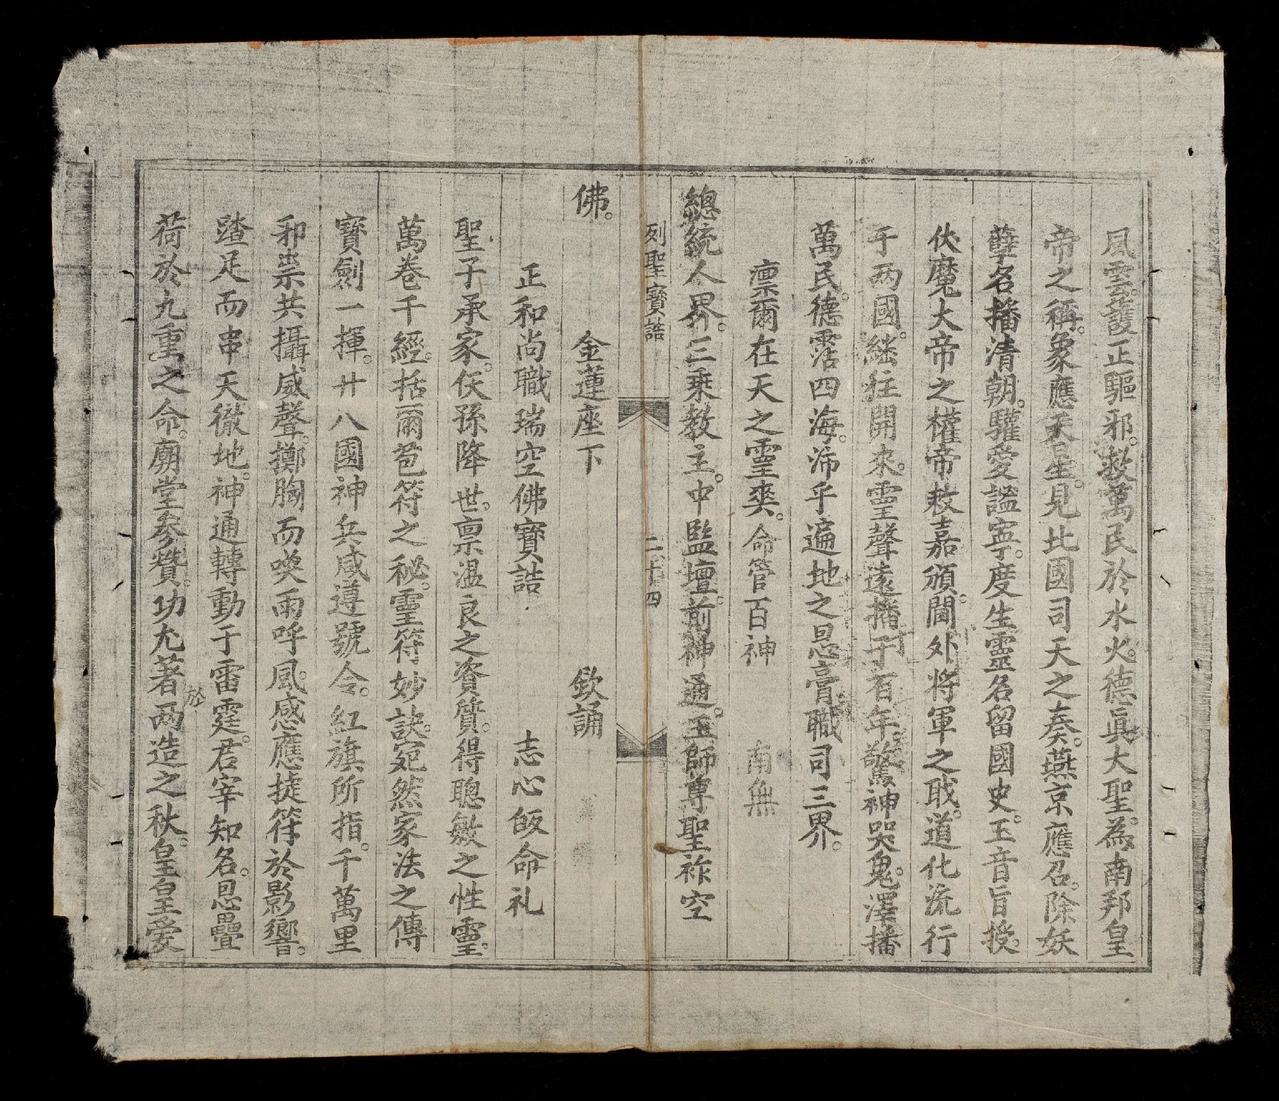 風雲。護正驅邪。救萬民於水火。德眞大聖。為南邦皇
帝之稱。象應天星。見北國司天之奏。燕京應召。除妖
孽名播清朝。驩愛謐寧。度生靈名留國史。玉音旨授。
伏魔大帝之權。帝敕嘉頒。閫外將軍之職。道化流行
于两國。繼往開來。靈聲遠播于百年。驚神哭鬼。澤播
萬民。德霑四海。沛乎遍地之恩膏。職司三界。
凛爾在天之靈爽。命管百神 南無
總統人界。三乗教主。中監壇前神通。玉師尊聖祚空
列聖寳誥 二十四
佛。 金蓮座下 欽誦
正和尚職瑞空佛寳誥 志心皈命礼
聖子承家。仸孫降世。禀温良之資質。得聰敏之性靈。
萬巻千經。括爾苞符之秘。靈符妙訣。宛然家法之傳
寳劍一揮。廿八國神兵咸遵號令。紅旗所指。千萬里
邪祟共攝威聲。擲胸而喚雨呼風。感應捷符於影響。
蹅足而串天徹地。神通轉動于雷霆。君宰知名。恩疊
荷於九重之命。廟堂參贊。功尤著於两造之秋。皇皇愛